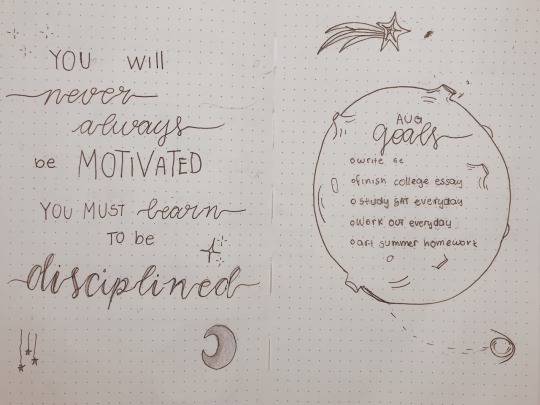 YOU will
never
always
be MOTIVATED
YOU MUST learn
TO be
disciplined
AUG
goals
write
finish college essay
study SAT everyday
work out everyday
art summer homework